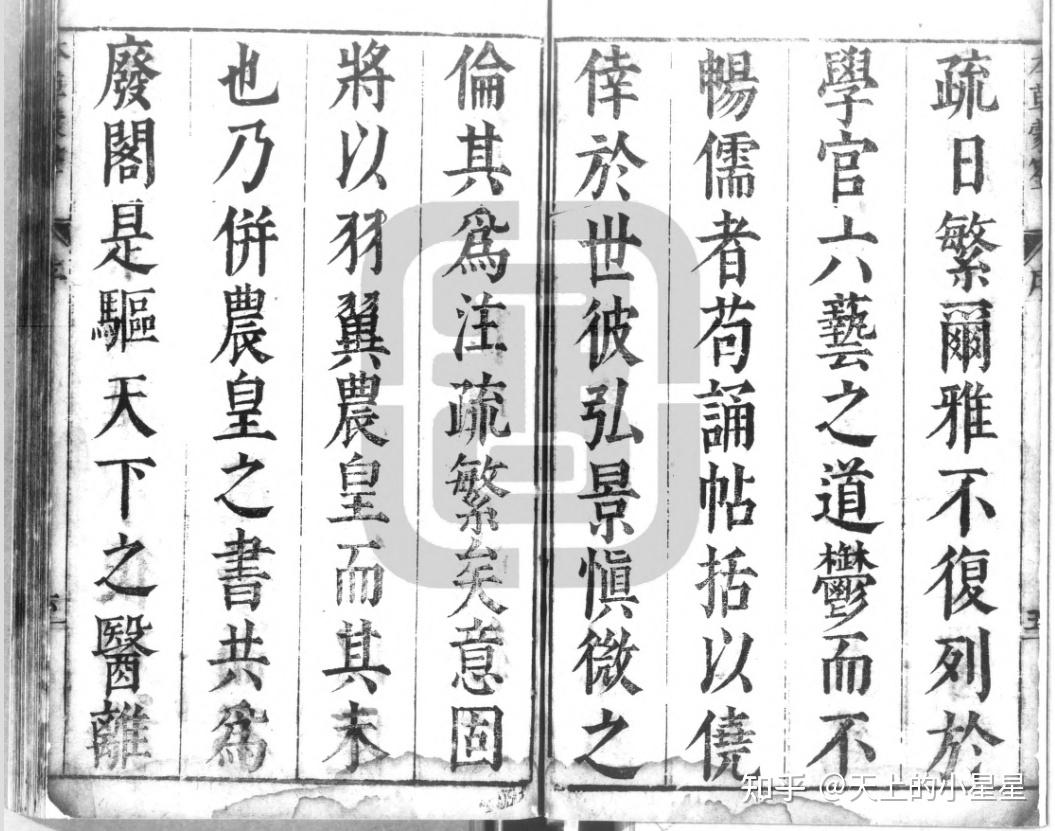 疏日繁爾雅不復列於
學官六藝之道鬱而不
暢儒者苟誦帖括以僥
倖於世彼弘景慎微之
倫其爲注疏繁矣意固
將以羽翼農皇而其末
也乃併農皇之書共爲
廢閣是驅天下之醫離
知乎 @天上的小星星